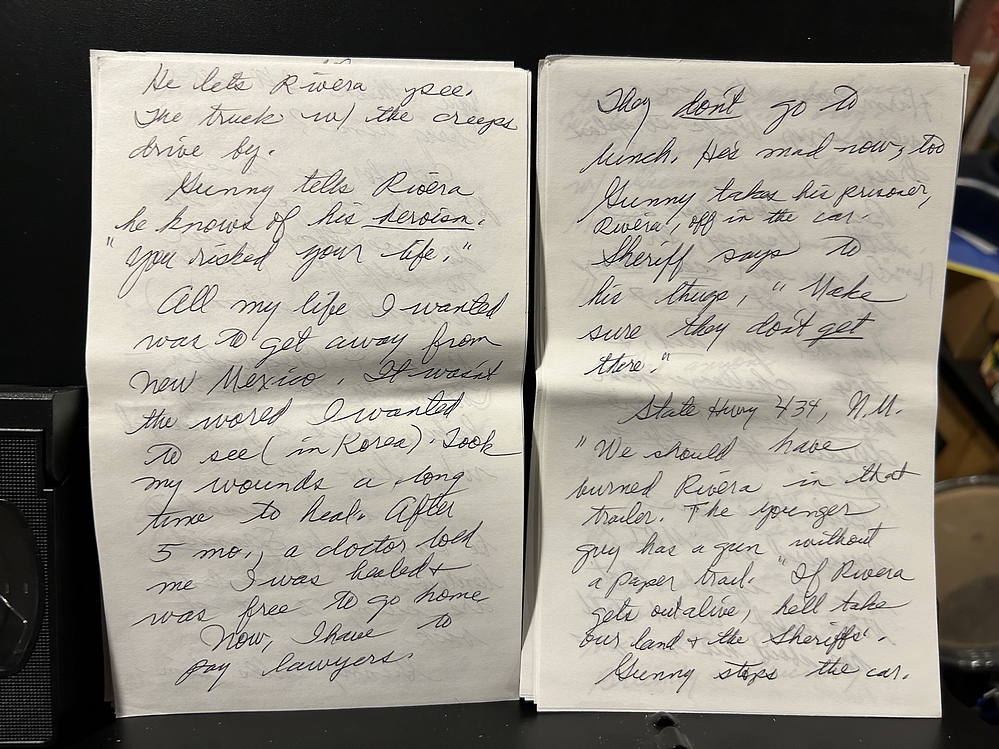 He lets Rivera see.
The truck w/ the creeps
drive by.
Gunny tells Rivera
he knows of his heroism.
"You risked your life."
All my life I wanted
was to get away from
New Mexico. It wasn't
the world I wanted
to see (in Korea). Took
my wounds a long
time to heal. After
5 mo., a doctor told
me I was healed &
was free to go home
Now, I have to
pay lawyers.
They don't go to
lunch. He's mad now, too
Gunny takes his prisoner,
Rivera, off in the car.
Sheriff says to
his thugs, "Make
sure they don't get
there."
State Hwy 434, N.M.
"We should have
burned Rivera in that
trailer. The younger
guy has a gun without
a paper trail. "If Rivera
gets out alive, hell take
our land & the Sheriffs'.
Gunny stops the car.